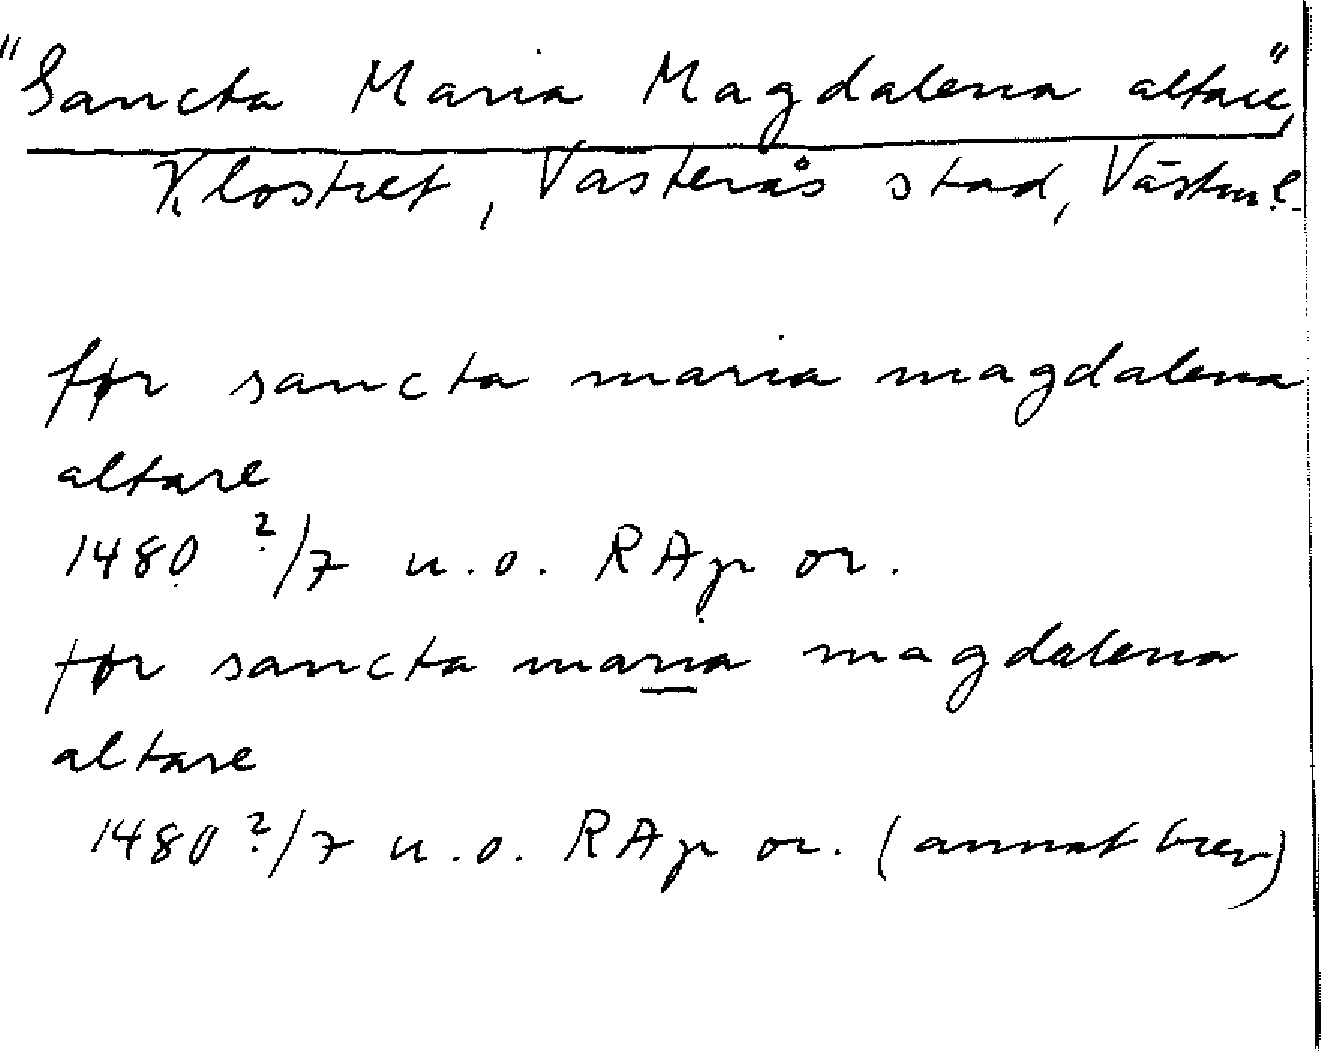 "Sancta Maria Magdalena altare",
Klostret, Västerås stad, Västm.l.
før sancta maria magdalena
altare
1480 2/7 u.o. RAp or.
før sancta maria magdalena
altare
1480 2/7 u.o. RAp or. (annat brev)